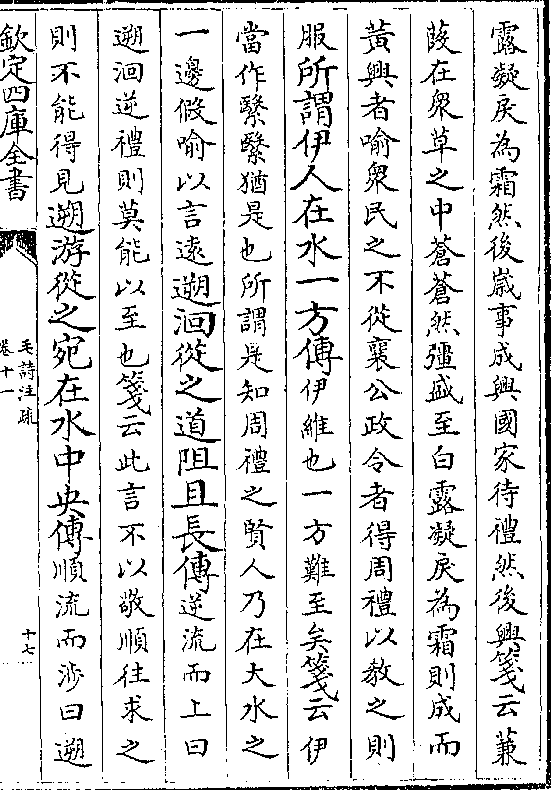 露凝戾為霜然後嵗事成興國家待禮然後興箋云蒹
葭在衆草之中蒼蒼然彊盛至白露凝戾為霜則成而
黃興者喻衆民之不從襄公政令者得周禮以教之則
服所謂伊人在水一方傳伊維也一方難至矣箋云伊
當作繄繄猶是也所謂是知周禮之賢人乃在大水之
一邊假喻以言遠遡洄從之道阻且長傳逆流而上曰
遡洄逆禮則莫能以至也箋云此言不以敬順往求之
則不能得見遡游從之宛在水中央傳順流而涉曰遡
欽定四庫全書
毛詩注疏
卷十一
十七